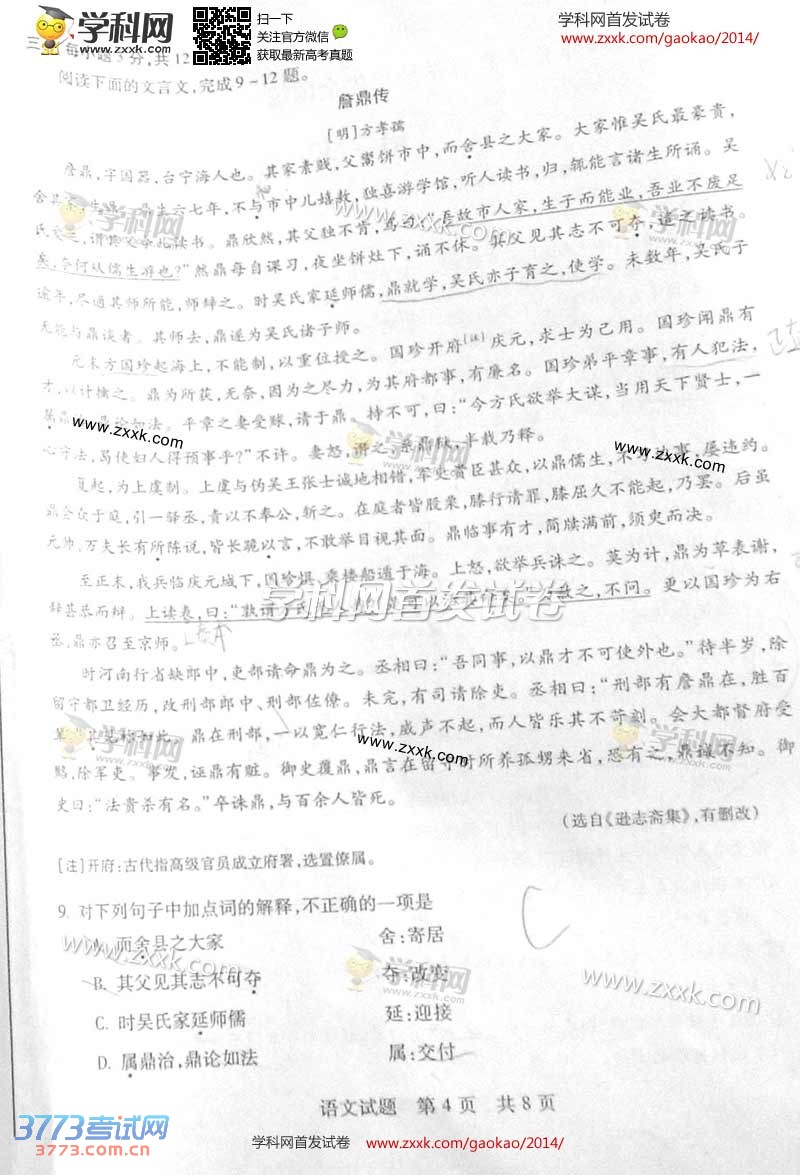 学科网
www.zxxk.com
扫一下
关注官方微信
获取最新高考真题
学科网首发试卷
www.zxxk.com/gaokao/2014/
阅读下面的文言文,完成9-12题。
詹鼎传
[明]方孝孺
詹鼎,字国器,台宁海人也。其家素贱,父鬻饼市中,而舍县之大家。大家惟吴氏最豪贵,
不与市中儿嬉敖,独喜游学馆,听人读书,归,辄能言诸生所诵。吴
读书。鼎欣然,其父独不肯,骂曰:“吾故市人家,生子而能业,吾业不废足
矣,奈何从儒生游也?”然鼎每自课习,夜坐饼灶下,诵不休。其父见其志不可夺,遣之读书。
逾年,尽通其师所能,师辞之。时吴氏家延师儒,鼎就学,吴氏亦子育之,使学。未数年,吴氏子
无能与鼎谈者。其师去,鼎遂为吴氏诸子师。
元末方国珍起海上,不能制,以重位授之。国珍开府[注]庆元,求士为己用。国珍闻鼎有
才,以计擒之。鼎为所获,无奈,因为之尽力,为其府都事,有廉名。国珍弟平章事,有人犯法,
鼎论如法。平章之妻受赇,请于鼎。持不可,曰:“今方氏欲举大谋,当用天下贤士,一
心守法,曷使妇人得预事乎?”不许。妻怒,谮之,系鼎狱,半载乃释。
复起,为上虞制。上虞与伪吴王张士诚地相错,军吏贵臣甚众,以鼎儒生,
屡违约。
鼎会众于庭,引一驿丞,责以不奉公,斩之。在庭者皆股栗,膝行请罪,膝屈久不能起,乃罢。后虽
元帅、万夫长有所陈说,皆长跪以言,不敢举目视其面。鼎临事有才,简牍满前,须臾而决。
至正末,我兵临庆元城下,国珍惧,乘楼船遁于海。上怒,欲举兵诛之。莫为计,鼎为草表谢,
辞甚恭而辩。上读表,曰:“孰谓方氏
赦之,不问。更以国珍为右
丞,鼎亦召至京师。
时河南行省缺郎中,吏部请命鼎为之。丞相曰:“吾同事,以鼎才不可使外也。”待半岁,除
留守都卫经历,改刑部郎中、刑部佐僚。未完,有司请除吏。丞相曰:“刑部有詹鼎在,胜百
鼎在刑部,一以宽仁行法,威声不起,而人皆乐其不苛刻。会大都督府受
赇,除军吏。事发,诬鼎有赃。御史覆鼎,鼎言在留守时所养孤甥来省,恐有之,鼎诚不知。御
史曰:“法贵杀有名。”卒诛鼎,与百余人皆死。
(选自《逊志斋集》,有删改)
[注]开府:古代指高级官员成立府署,选置僚属。
9. 对下列句子中加点词的解释,不正确的一项是
C
A. 而舍县之大家 舍:寄居
B. 其父见其志不可夺 夺:改变
C. 时吴氏家延师儒 延:迎接
D. 属鼎治,鼎论如法 属:交付
语文试题 第4页 共8页
3773考试网
3773.com.cn
学科网首发试卷 www.zxxk.com/gaokao/2014/